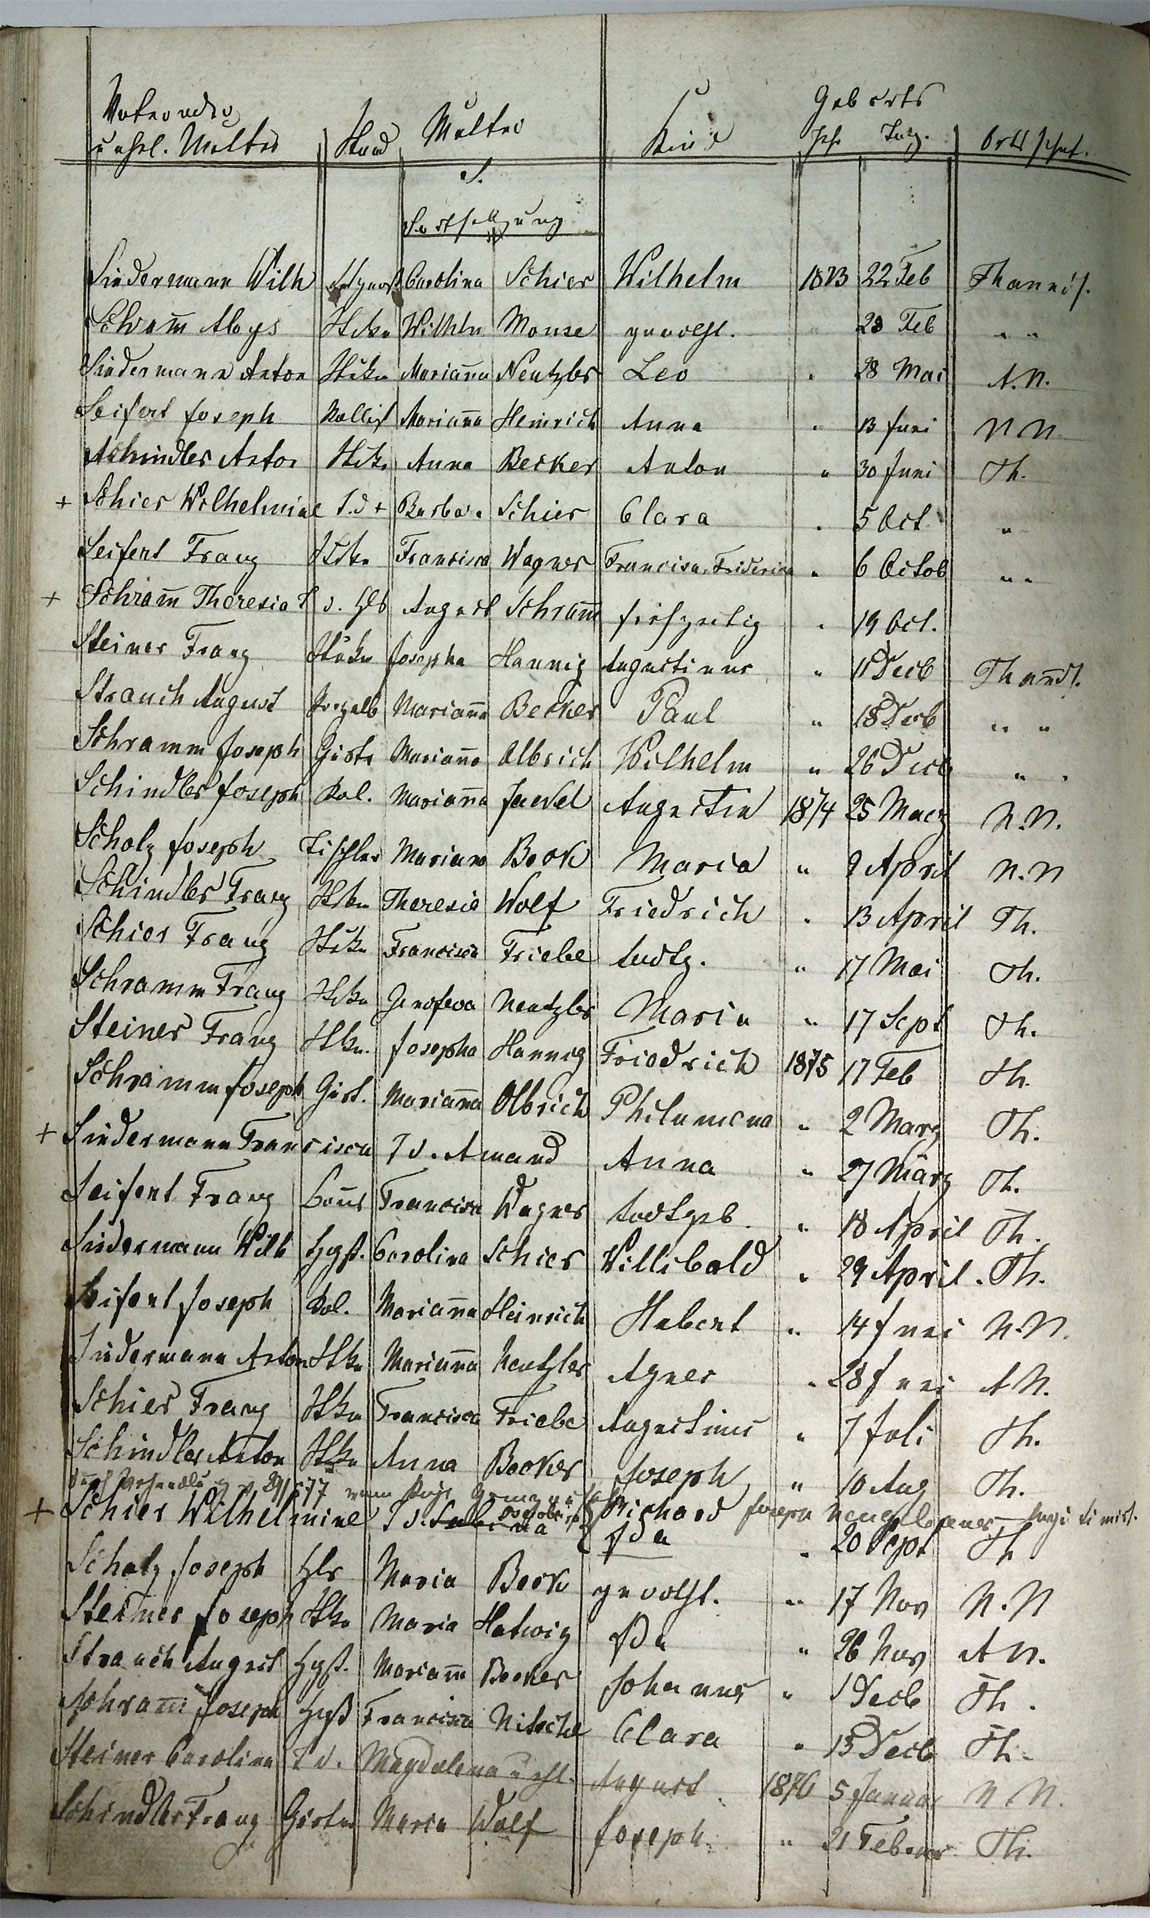 Geborts
Vater oder
unehl. Mutter Stand Mutter Kind Jah. Tag. Ortschaf.
S.
Fortsetzung
Sindermann Wilh Carolina Schier Wilhelm 1873 22 Feb Thannd.
Schram̅ Aloys Stkn Wilhln Monse gevolgt. " 28 Feb " "
Sindermann Anton Stkn Marian̅a Nentzler Leo " 28 Mai A. N.
Seifert Joseph Marian̅a Heinrich Anna " 13 Juni N N
Schindler Anton Stkn Anna Becker Anton " 30 Juni Th.
+ Schier Wilhelmine T. d + Barbara Schier Clara " 5 Oct "
Seifert Franz Stkn Francisca Wagner Francisca Friderica " 6 Octob " "
+ Schram̅ Theresia T d. Hlb August Schram̅ frühzeitig " 19 Oct.
Steiner Franz Stkn Josepha Hannig Augustinus " 11 Decb Thannd.
Strauch August Marian̅a Becker Paul " 18 Decb " "
Schramm Joseph Gärtr Marian̅a Olbrich Wilhelm " 26 Decb " "
Schindler Joseph Kol. Marian̅a Jaekel Augustin 1874 25 Maerz N. N.
Scholz Joseph Tischler Mariana Beck Maria " 9 April N. N
Schindler Franz Stkn Theresia Wolf Friedrich " 13 April Th.
Schier Franz Stkn Francisca Triebe todtg. " 17 Mai Th.
Schramm Franz Stkn Genofeva Nentzler Maria " 17 Sept Th.
Steiner Franz Stkn. Josepha Hannig Friedrich 1875 17 Feb Th.
Schramm Joseph Gärt. Marian̅a Olbrich Philumena " 2 Marz Th.
+ Sindermann Francisca T d. Amand Anna " 27 März Th.
Seifert Franz Francisca Wagner todtgeb. " 18 April Th.
Sindermann Wilh Carolina Schier Willibald " 29 April. Th.
Seifert Joseph Kol. Marian̅a Heinrich Hubert " 14 Juni N. N.
Sindermann Anton Stkn Marian̅a Nentzler Agnes " 28 Juni A N.
Schier Franz Stkn Francisca Triebe Augustinus " 7 Juli Th.
Schindler Anton Stkn Anna Becker Joseph " 10 Aug Th.
+ Schier Wilhelmine T d. Richard Joseph
Ida " 20 Sept Th
Scholz Joseph Hlr Maria Beck gevolgt. " 17 Nov N. N
Steiner Joseph Stkn Maria Hatwig Ida " 26 Nov A N.
Strauch August Marian̅ Becker Johannes " 1 Decb Th.
Schram̅ Joseph Francisca Nitsche Clara " 13 Decb Th.
Steiner Carolina T d. Magdalena unehl. August 1876 5 Januar N N.
Schindler Franz Gärtn Maria Wolf Joseph " 21 Februar Th.